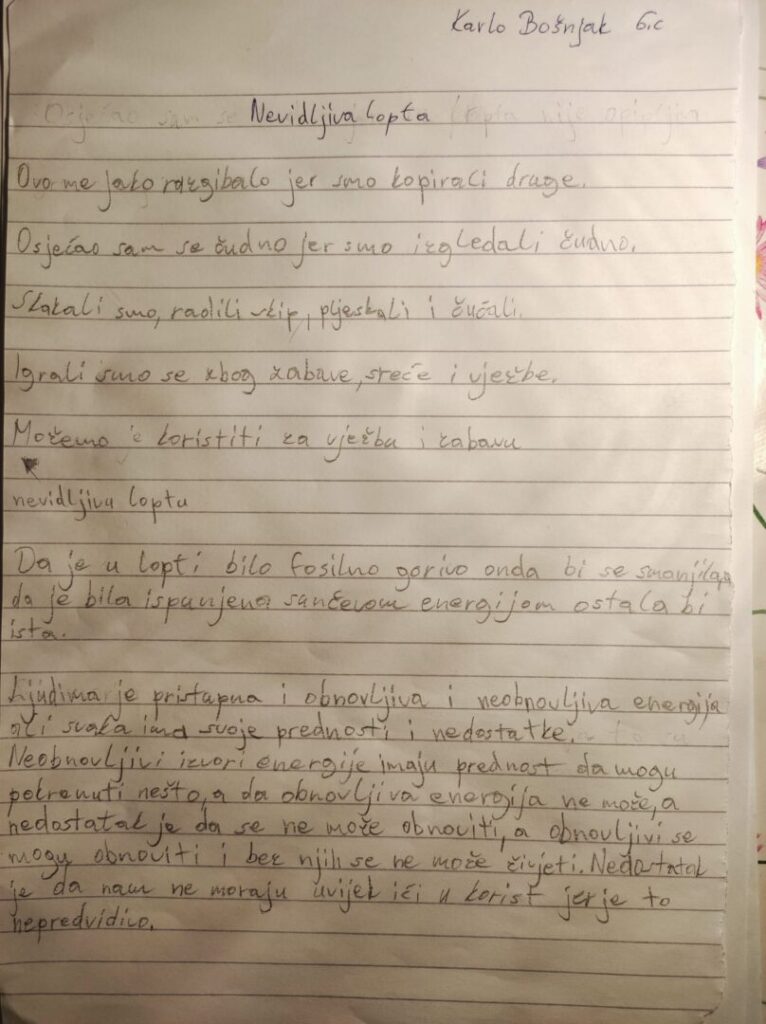 Karlo Bošnjak 6.c
Nevidljiva lopta
Ovo me jako razgibalo jer smo kopirali druge.
Osjećao sam se čudno jer smo izgledali čudno.
Skakali smo, radili skip, pljeskali i čučali.
Igrali smo se zbog zabave, sreće i vježbe.
Možemo je koristiti za vježbu i zabavu
nevidljivu loptu
Da je u lopti bilo fosilno gorivo onda bi se smanjila, a
da je bila ispunjena sunčevom energijom ostala bi
ista.
Ljudima je pristupna i obnovljiva i neobnovljiva energija
ali svaka ima svoje prednosti i nedostatke.
Neobnovljivi izvori energije imaju prednost da mogu
pokrenuti nešto, a da obnovljiva energija ne može, a
nedostatak je da se ne može obnoviti, a obnovljivi se
mogu obnoviti i bez njih se ne može živjeti. Nedostatak
je da nam ne moraju uvijek ići u korist jer je to
nepredvidivo.